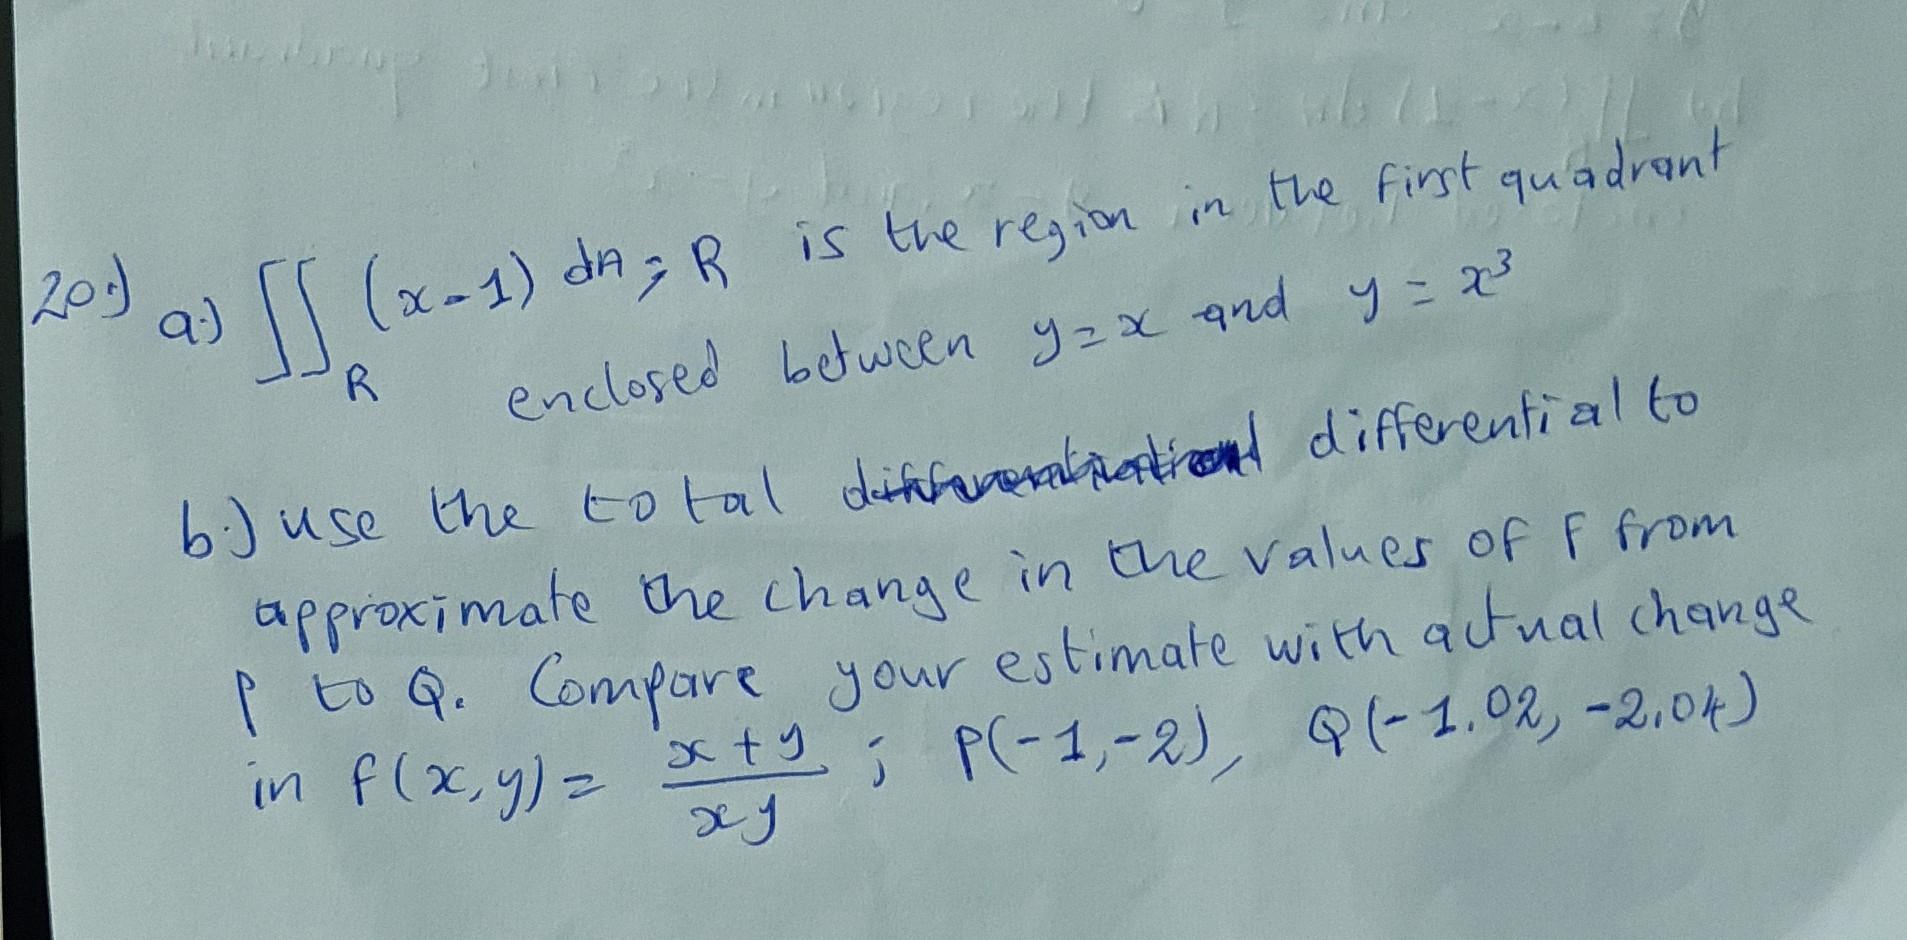 20.) a.) ∬_R (x-1) dA ; R is the region in the first quadrant
enclosed between y=x and y = x³
b.) use the total differential to
approximate the change in the values of f from
P to Q. Compare your estimate with actual change
in f(x,y) = (x+y)/(xy) ; P(-1,-2), Q(-1.02, -2.04)